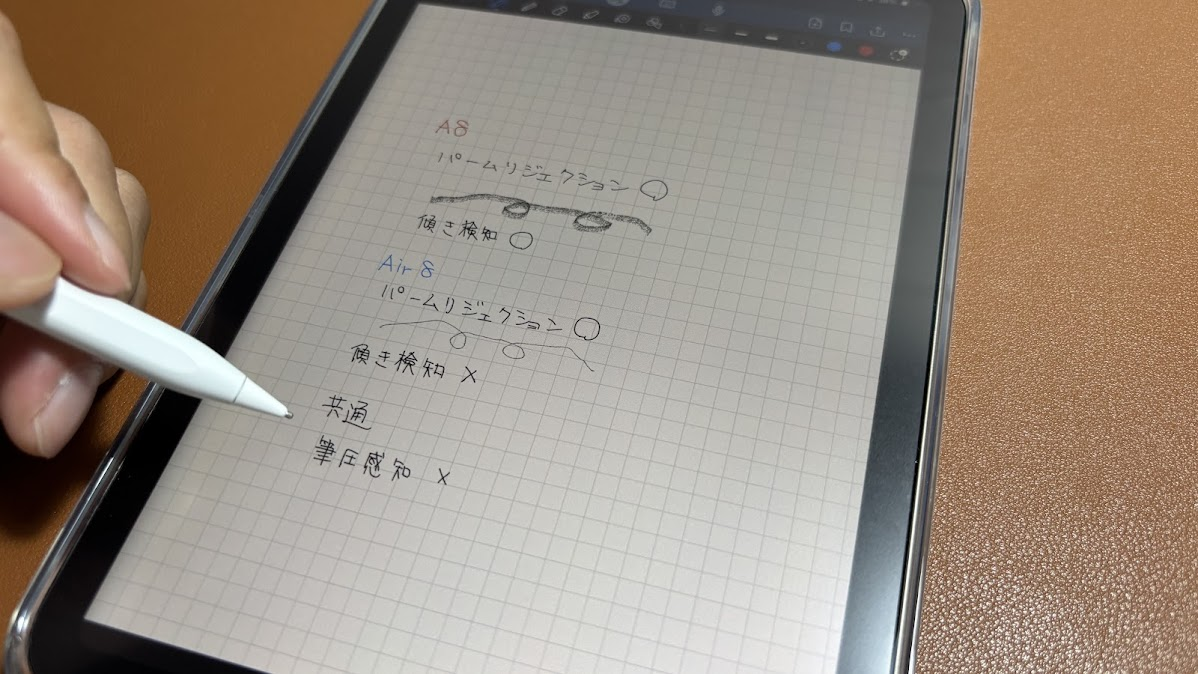 A8
パームリジェクション ○
傾き検知 ○
Air 8
パームリジェクション ○
傾き検知 ×
共通
筆圧感知 ×